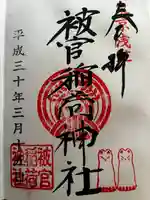 奉拝
浅草
被官稲荷神社
平成三十年三月十一日
被官
稲荷
神社